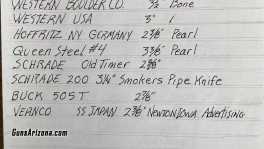 WESTERN BOULDER CO. 3½" Bone
WESTERN USA 3" 1
HOFFRITZ NY GERMANY 2⅞" Pearl
Queen Steel #4 3⅜" Pearl
SCHRADE Old Timer 2⅞"
SCHRADE 200 3¼" Smokers Pipe Knife
BUCK 505T 2⅞"
VERNCO SS JAPAN 2⅞" NEWTON IOWA Advertising
GunsArizona.com